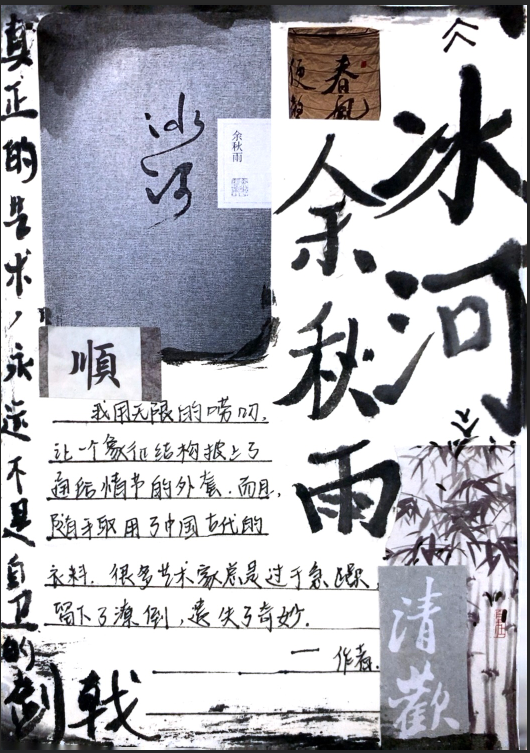 真正的艺术，永远不是自卫的剑戟
冰河
余秋雨
春风
便
《冰河》
余秋雨
順
我用无限的唠叨，
让一个象征结构披上了
通俗情节的外套。而且，
随手取用了中国古代的
衣料。很多艺术家总是过于急躁，
留下了潦倒，丧失了奇妙。
— 作者.
清歡